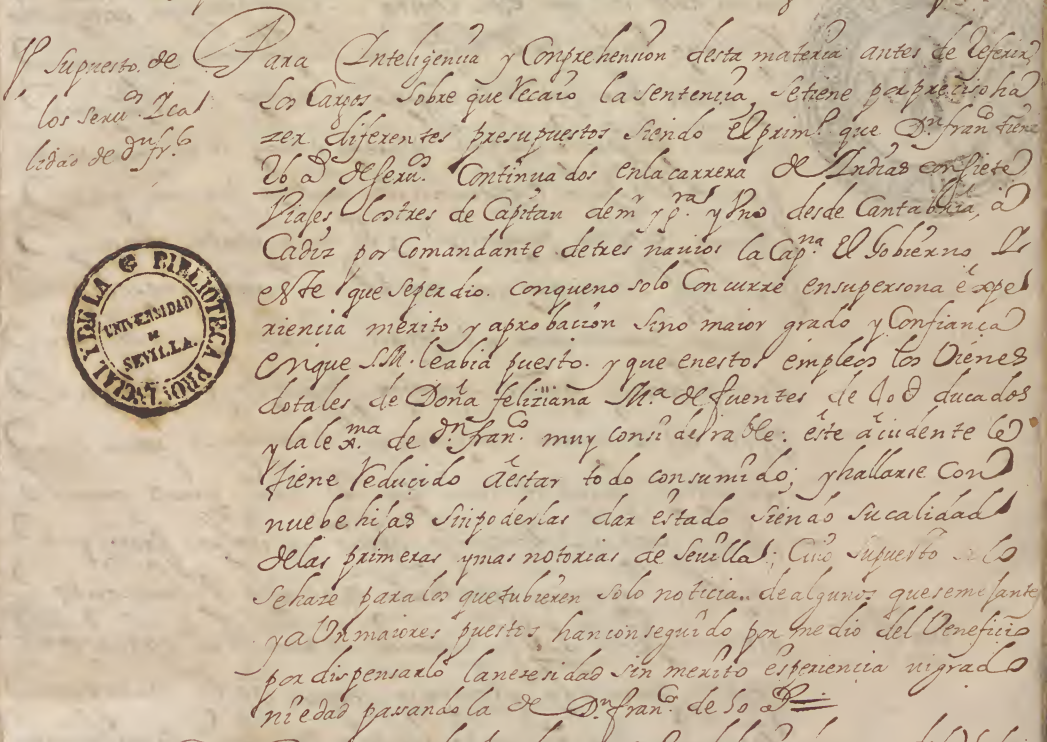 Pº Supuesto de
los seru.os I ca
lidad de Dn Fr.co
Para Inteligencia y Comprehension desta materia antes de referir
los Cargos sobre que recaio la sentencia, setiene por preciso ha
zer diferentes presupuestos siendo el prim.o que Dn. fran.co tiene
26 as de seru.o Continuados enla carrera de Indias con siete
Viajes Los tres de Capitan de mr y gra. y Vno desde Cantabria, a
Cadiz por Comandante detres navios la Capna. El Gobierno, I
este que seperdio. conqueno solo Concurre ensupersona expe
riencia merito y aprobacion sino maior grado y Confiança
enque S.M. leabia puesto. y que enestos empleos los Vienes
dotales de Doña feliziana Ma. de fuentes de ducados
y la lexma de Dn. fran.co muy considerable: este acidente le
tiene reducido aestar todo consumido; yhallarse Con
nuebe hijas sinpoderlas dar estado siendo sucalidad
delas primeras ymas notorias de Sevilla; Cuio supuesto
sehaze paralos quetubieren solo noticia.. dealgunos quesemejantes
ya Vn maiores puestos hanconseguido por medio del Veneficio
por dispensarlo lanecesidad sin merito esperiencia nigrado
niedad passandola de Dn. fran.co de 50 as
BIBLIOTECA PROVINCIAL Y DE LA
UNIVERSIDAD
DE
SEVILLA.